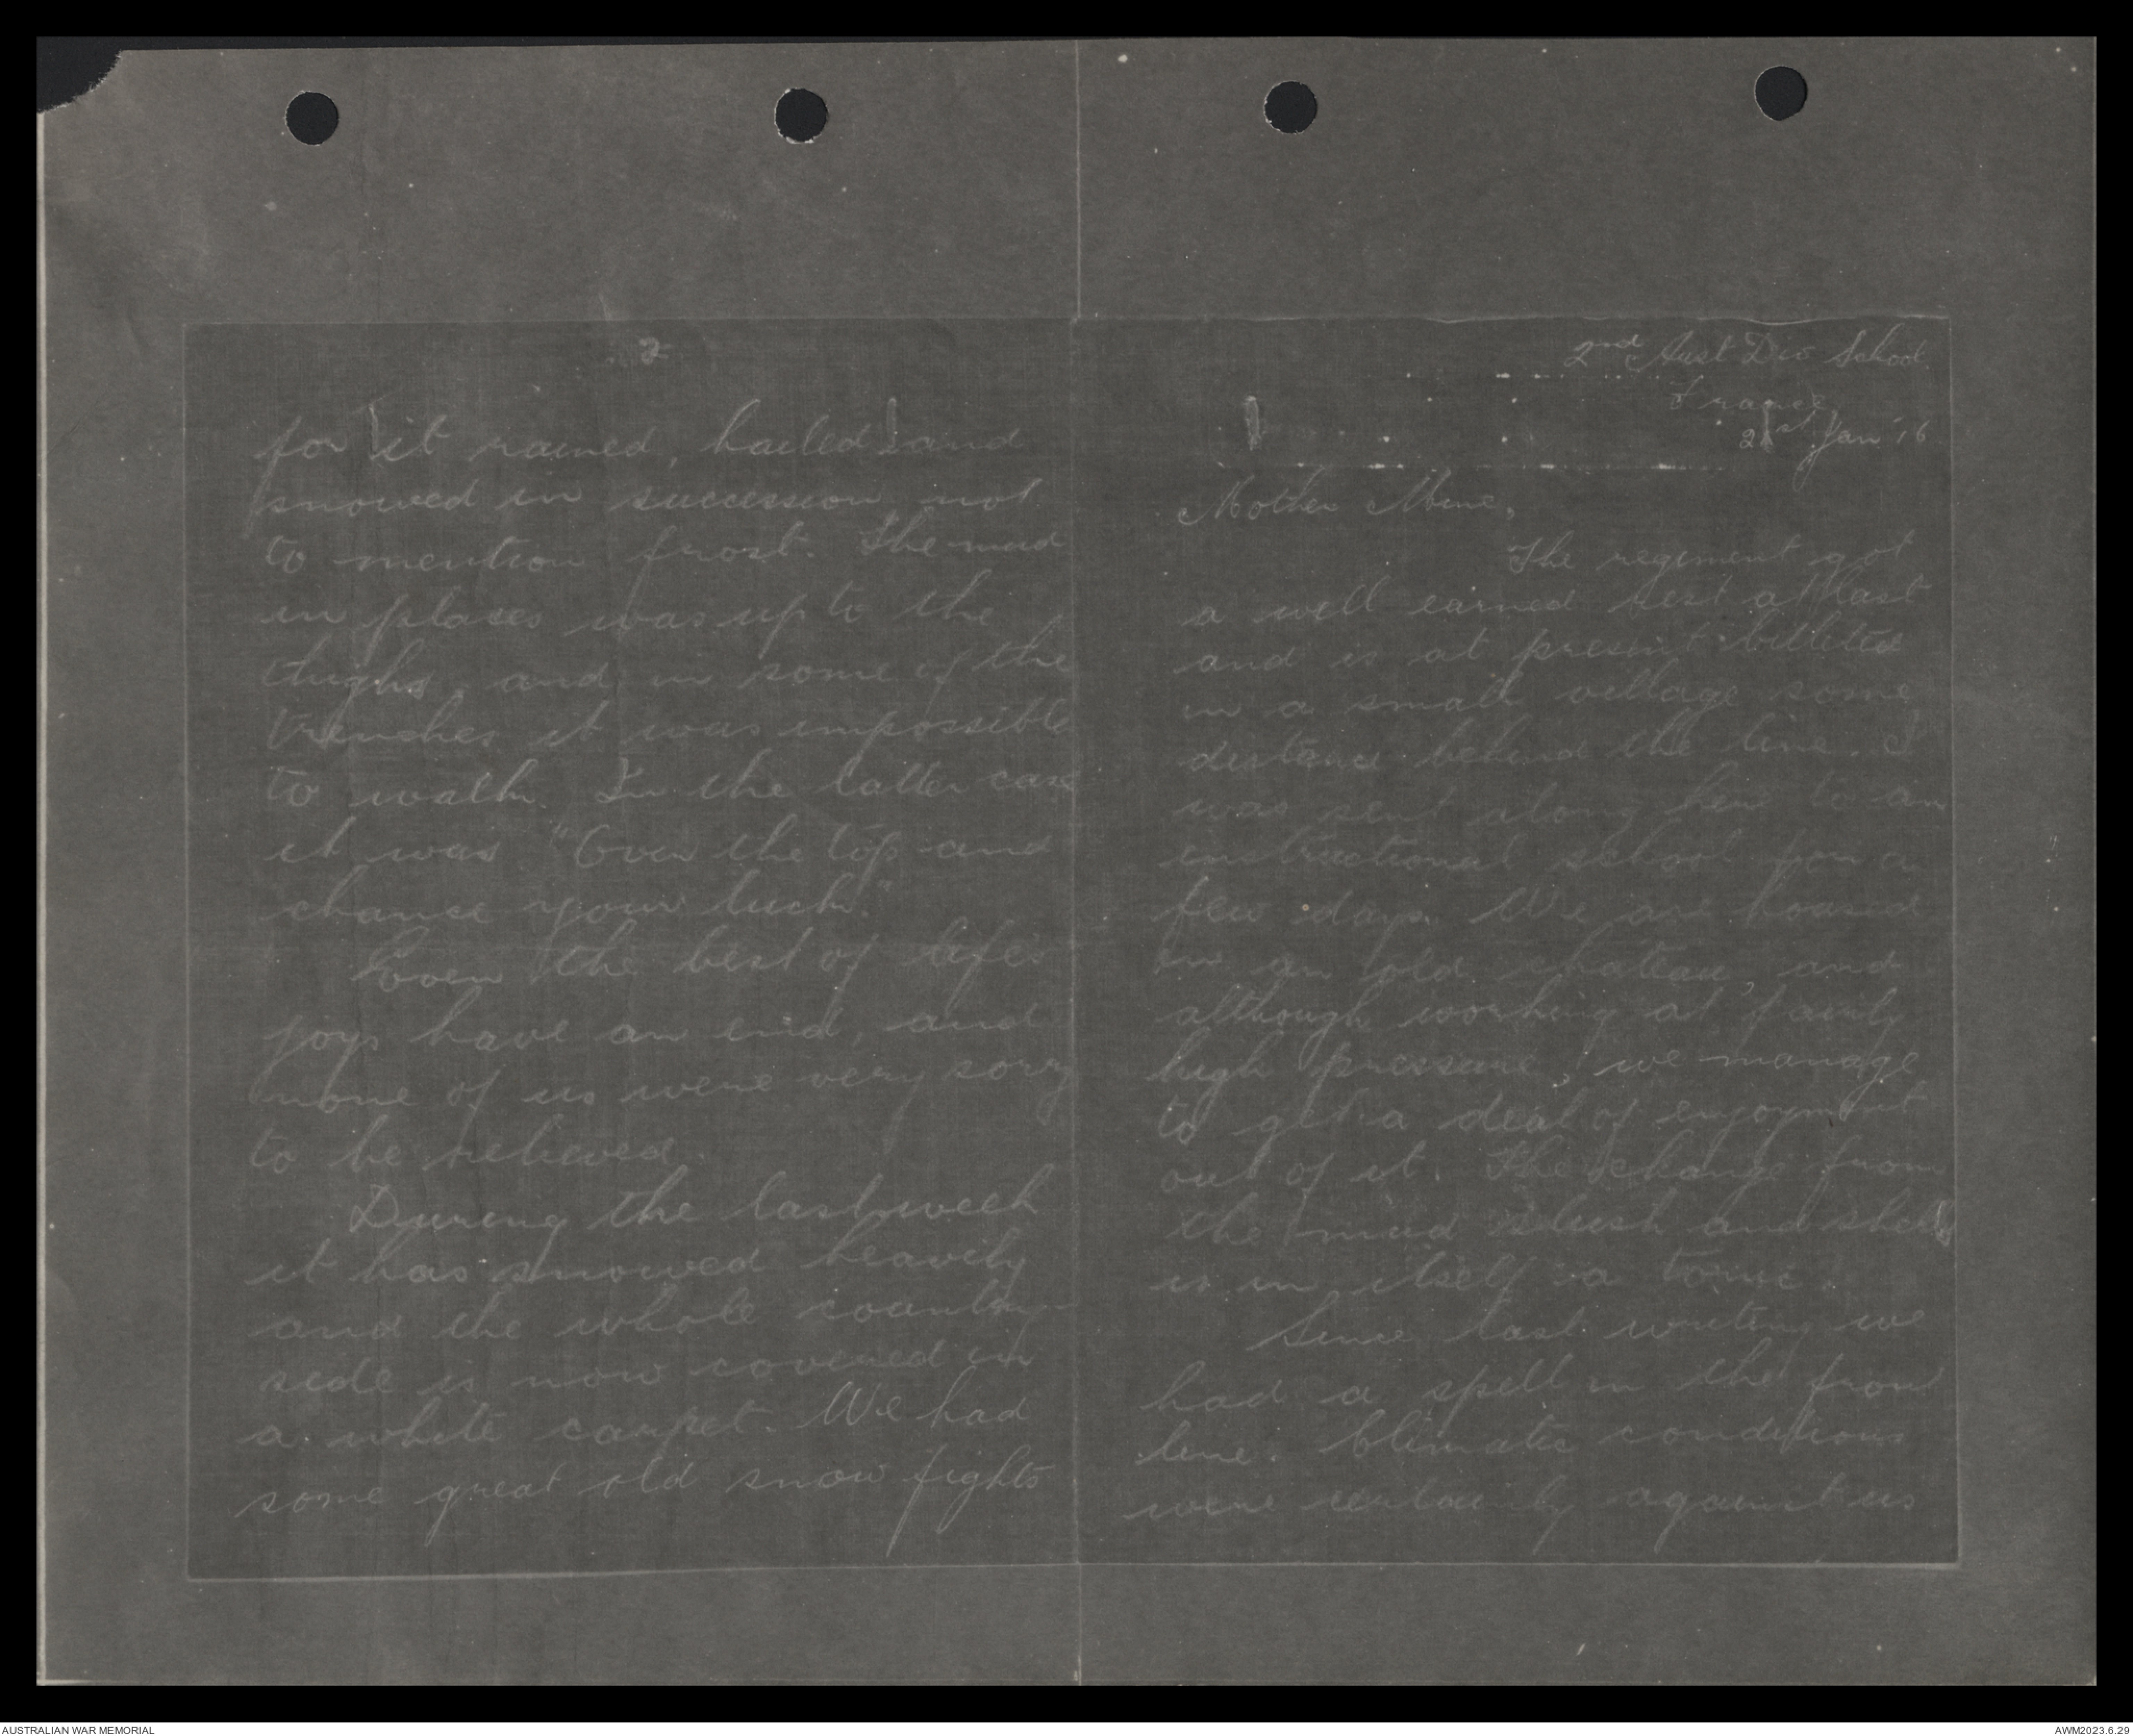 2nd Aust Div School.
France
21st Jan '16
Mother Mine,
The regiment got
a well earned rest at last
and is at present billeted
in a small village some
distance behind the line. I
was sent along here to an
instructional school for a
few days. We are housed
in an old chateau, and
although working at fairly
high pressure, we manage
to get a deal of enjoyment
out of it. The change from
the mud slush and shells
is in itself a tonic.
Since last writing we
had a spell in the front
line. Climatic conditions
were certainly against us
2
for it rained, hailed and
snowed in succession not
to mention frost. The mud
in places was up to the
thighs, and in some of the
trenches it was impossible
to walk. In the latter case
it was "Over the top and
chance your luck."
Even the best of life's
joys have an end, and
none of us were very sorry
to be relieved.
During the last week
it has snowed heavily
and the whole country
side is now covered in
a white carpet. We had
some great old snow fights
AUSTRALIAN WAR MEMORIAL
AWM2023.6.29